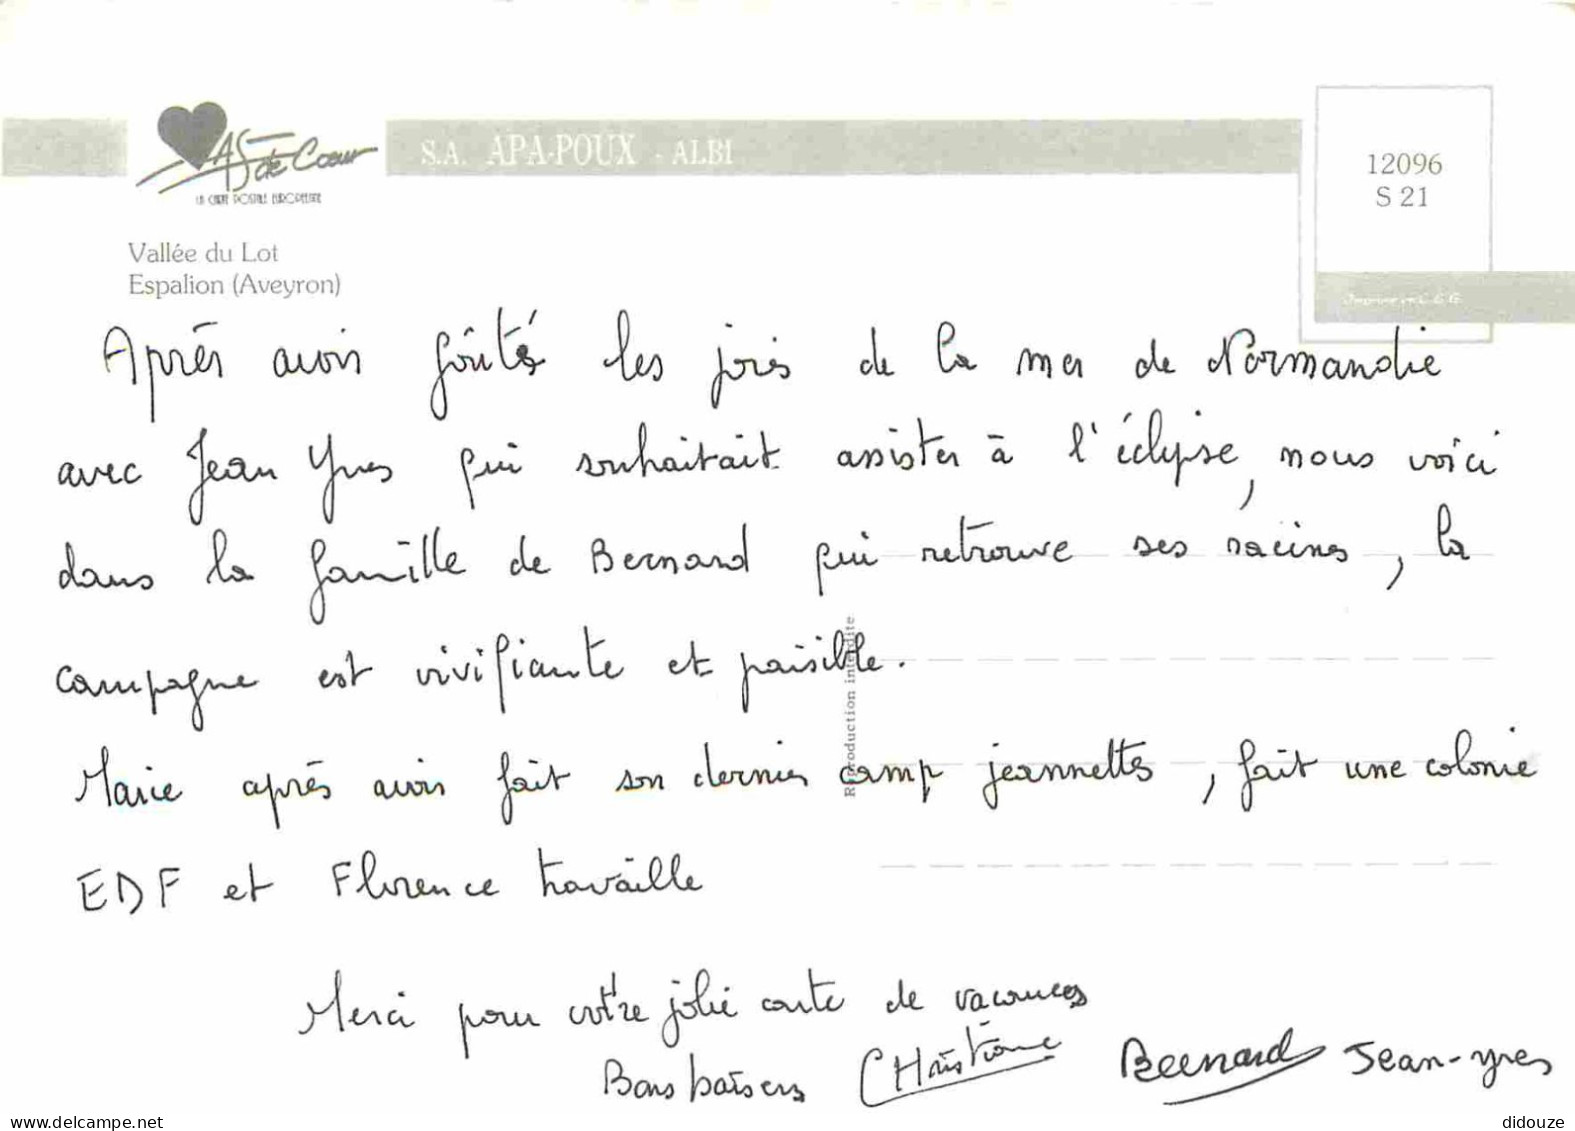 AS de Cœur
LA CARTE POSTALE EUROPEENNE
S.A. APA-POUX - ALBI
12096
S 21
Vallée du Lot
Espalion (Aveyron)
Imprimé en C.E.E.
Après avoir goûté les joies de la mer de Normandie
avec Jean Yves qui souhaitait assister à l'éclipse, nous voici
dans la famille de Bernard qui retrouve ses racines, la
campagne est vivifiante et paisible.
Reproduction interdite
Marie après avoir fait son dernier camp jeannettes, fait une colonie
EDF et Florence travaille
Merci pour votre jolie carte de vacances
Bons baisers Christiane Bernard Jean-Yves
delcampe.net
didouze